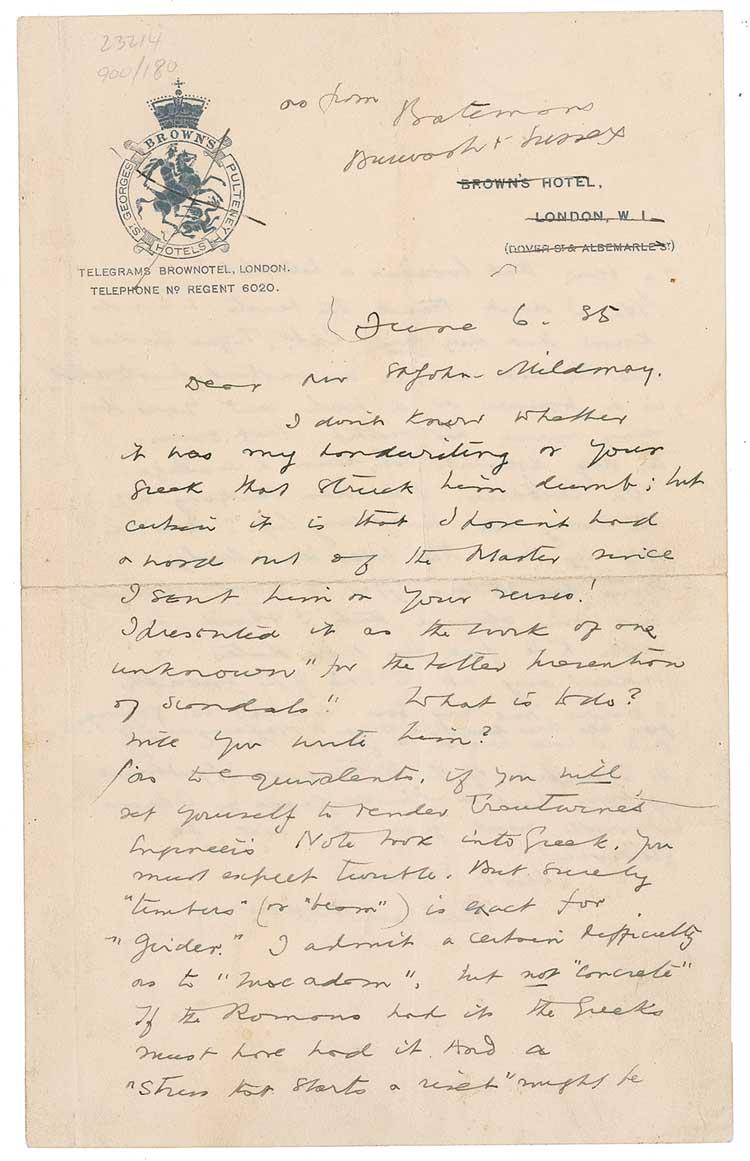 23214
900/180
as from Batemans
Burwash & Sussex
BROWN'S
ST GEORGES
PULTENEY
HOTELS
BROWN'S HOTEL,
LONDON, W. 1.
(DOVER ST & ALBEMARLE ST)
TELEGRAMS BROWNOTEL, LONDON.
TELEPHONE No REGENT 6020.
June 6. 35
Dear Mr StJohn-Mildmay.
I don't know whether
it was my handwriting or your
Greek that struck him dumb; but
certain it is that I haven't had
a word out of the Master since
I sent him on your verses!
I presented it as the work of one
unknown "for the better prevention
of scandals". What is to do?
Will you write him?
As to equivalents, if you will
set yourself to render Trautwine's
Engineers Note book into Greek, you
must expect trouble. But surely
"timbers" (or "beam") is exact for
"girder." I admit a certain difficulty
as to "macadam", but not "concrete"
If the Romans had it the Greeks
must have had it. And a
"stress that starts a rivet" might be